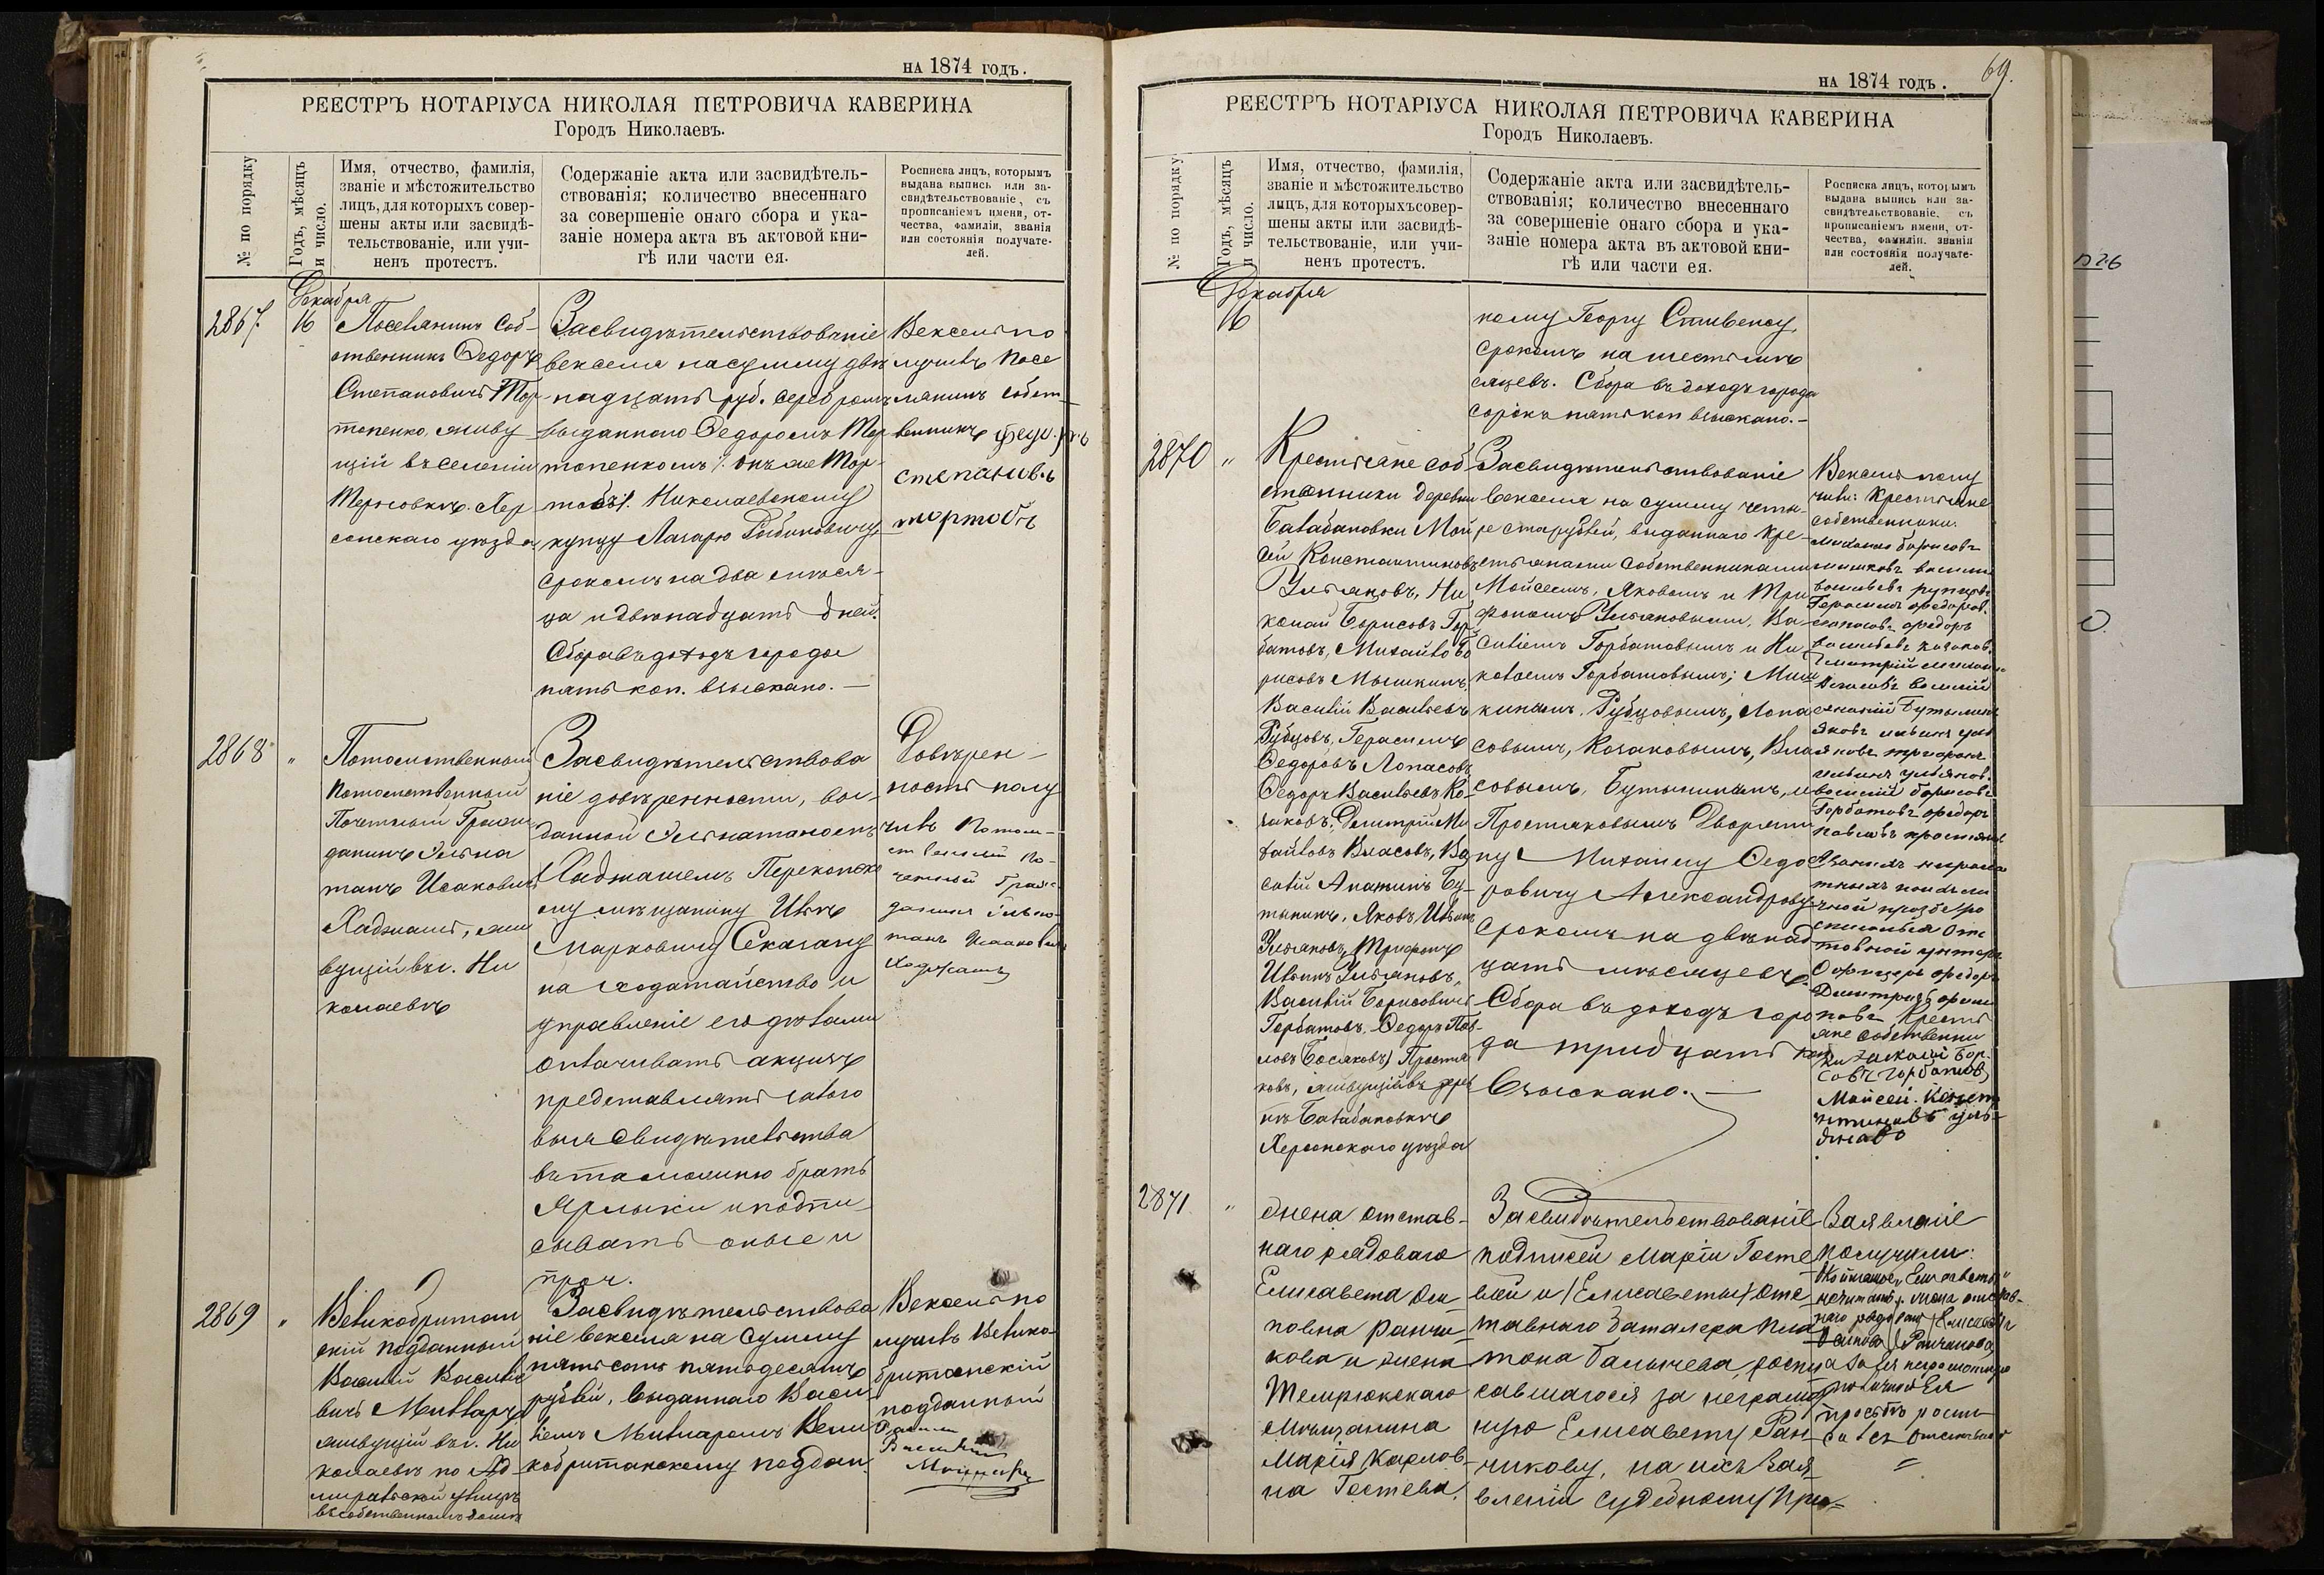 на 1874 годъ.
РЕЕСТРЪ НОТАРІУСА НИКОЛАЯ ПЕТРОВИЧА КАВЕРИНА
Городъ Николаевъ.
№ по порядку
Годъ, мѣсяцъ
и число.
Имя, отчество, фамилія,
званіе и мѣстожительство
лицъ, для которыхъ совер-
шены акты или засвидѣ-
тельствованіе, или учи-
ненъ протестъ.
Содержаніе акта или засвидѣтель-
ствованія; количество внесеннаго
за совершеніе онаго сбора и ука-
заніе номера акта въ актовой кни-
гѣ или части ея.
Росписка лицъ, которымъ
выдана выпись или за-
свидѣтельствованіе, съ
прописаніемъ имени, от-
чества, фамиліи, званія
или состоянія получате-
лей.
Декабря
2867.
16
Поселянинъ соб-
ственникъ Федоръ
Степановичъ Тор-
топенко, живу
щій въ селеніи
Терновкѣ Хер
сонскаго уѣзда
Засвидѣтельствованіе
векселя на сумму две
надцать руб. серебромъ
выданнаго Федоромъ Тор
топенкомъ /. онъ же Тор-
тобъ /. Николаевскому
купцу Лазарю Рабиновичу,
срокомъ на два мѣся-
ца и двенадцать дней.
Сбора въ доходъ города
пять коп. взыскано. —
Вексель по
лучилъ посе
лянинъ собст-
венникъ Федоръ
степановъ
тортобъ
2868
"
Потомственный
потомственный
Почетный Граж
данинъ Эльна
танъ Исаковичъ
Хаджашъ, жи
вущій въ г. Ни
колаевѣ
Засвидѣтельствова
ніе довѣренности, вы-
данной Эльнатаномъ
Хаджашемъ Перекопско
му мѣщанину Ильѣ
Марковичу Сказану
на ходатайство и
управленіе его дѣлами
оплачивать акцизъ
представлять
выя свидѣтельства
въ таможню брать
Ярлыки и подпи-
сывать оные и
проч.
Довѣрен-
ность полу
чилъ Потом-
ственный По-
четный Граж-
данинъ Эльна-
танъ Исааковичъ
Хаджашъ
2869
"
Великобритан
скій подданный
Василій Василье
вичъ Миллеръ
живущій въ г. Ни
колаевѣ по Ад-
миральской улицѣ
въ собственномъ домѣ
Засвидѣтельствова
ніе векселя на сумму
пятьсотъ пятьдесятъ
рублей, выданнаго Васи
ліемъ Миллеромъ Вели
кобританскому поддан
Вексель по
лучилъ Велико-
британскій
подданный
Василій
на 1874 годъ.
69.
РЕЕСТРЪ НОТАРІУСА НИКОЛАЯ ПЕТРОВИЧА КАВЕРИНА
Городъ Николаевъ.
№ по порядку
Годъ, мѣсяцъ
и число.
Имя, отчество, фамилія,
званіе и мѣстожительство
лицъ, для которыхъ совер-
шены акты или засвидѣ-
тельствованіе, или учи-
ненъ протестъ.
Содержаніе акта или засвидѣтель-
ствованія; количество внесеннаго
за совершеніе онаго сбора и ука-
заніе номера акта въ актовой кни-
гѣ или части ея.
Росписка лицъ, которымъ
выдана выпись или за-
свидѣтельствованіе, съ
прописаніемъ имени, от-
чества, фамиліи, званія
или состоянія получате-
лей.
Декабря
16
ному Георгу Стивенсу,
срокомъ на шесть мѣ
сяцевъ. Сбора въ доходъ города
сорокъ пять коп взыскано. —
2870
"
Крестьяне соб
ственники деревни
Балабановки Мой
сей Константиновъ
Ульяновъ, Ни
колай Борисовъ Гор
батовъ, Михайло Бо
рисовъ Мышкинъ,
Василій Васильевъ
Рубцовъ, Герасимъ
Федоровъ Лопасовъ
Федоръ Васильевъ Ко-
заковъ, Дмитрій Ми
хайловъ Власовъ, Ва
силій Ананьинъ Бу-
тынинъ, Яковъ Ильинъ
Ульяновъ, Трифонъ
Ильинъ Ульяновъ,
Василій Борисовичъ
Горбатовъ, Федоръ Пав-
ловъ (Босяковъ) Простя
ковъ, живущій въ дерев
нѣ Балабановкѣ
Херсонскаго уѣзда
Засвидѣтельствованіе
векселя на сумму четы-
ре ста рублей, выданнаго кре-
стьянами собственниками
Мойсеемъ, Яковомъ и Три
фономъ Ульяновыми, Ва-
силіемъ Горбатовымъ и Ни
колаемъ Горбатовымъ; Мыш
кинымъ, Рубцовымъ, Лопа
совымъ, Козаковымъ, Вла
совымъ, Бутынинымъ, и
Простяковымъ Дворяни
ну Михаилу Федо
ровичу Александрову
срокомъ на двѣнад
цать мѣсяцевъ.
Сбора въ доходъ горо
да тридцать коп
взыскано. —
Вексель полу
чили: Крестьяне
собственники:
михаило борисовъ
мышковъ васили
васильевъ рупцовъ
Герасимъ федоров.
лопасовъ федоръ
васильевъ казаков.
Дмитрій михаило
власовъ василій
ананій бутынинъ
Яковъ ильинъ уль
яновъ трифонъ
ильинъ ульянов.
василій борисовъ
Горбатовъ федоръ
павловъ простяковъ
А за нихъ неграмо
тныхъ по ихъ ли
чной прозбѣ ро
списался отс
тавной унтеръ
офицеръ федоръ
Дмитріевъ
Кресть
яне собственни
ки Николай Бор-
совъ горбатовъ
Мойсей. Конст
нтиновъ уль-
яновъ
2871
"
жена отстав-
наго рядоваго
Елисавета Оси
повна Ранчи-
кова и жена
Темрюкскаго
мѣщанина
Марія Карлов-
на Гостева,
Засвидѣтельствованіе
подписей Маріи Госте
вой и /Елисаветы/ Отс-
тавнаго баталера Пла
тона Балычева, роспи
савшагося за неграмот
ную Елисавету Ран-
чикову, на ихъ Зая-
вленіи Судебному При-
Заявленіе
получили:
жена отстав-
наго рядоваго Елисавета
Осипова Ранчикова
а за нея неграмотную
по личной Ея
просьбѣ роспи-